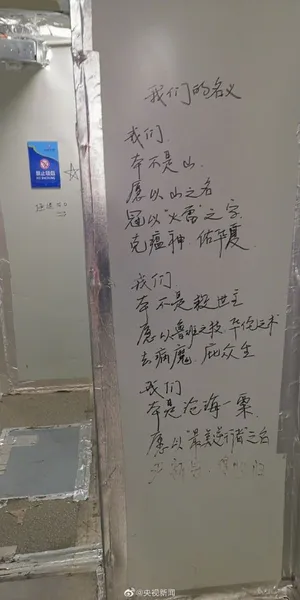 我们的名义
我们.
本不是山.
愿以山之名
冠以"火雷"之字
克瘟神.佑华夏.
我们.
本不是救世主
愿以鲁班之技.华佗之术
去病魔.庇众生
我们
本是沧海一粟.
愿以"最美逆行者"之名
禁止吸烟
NO SMOKING
@央视新闻